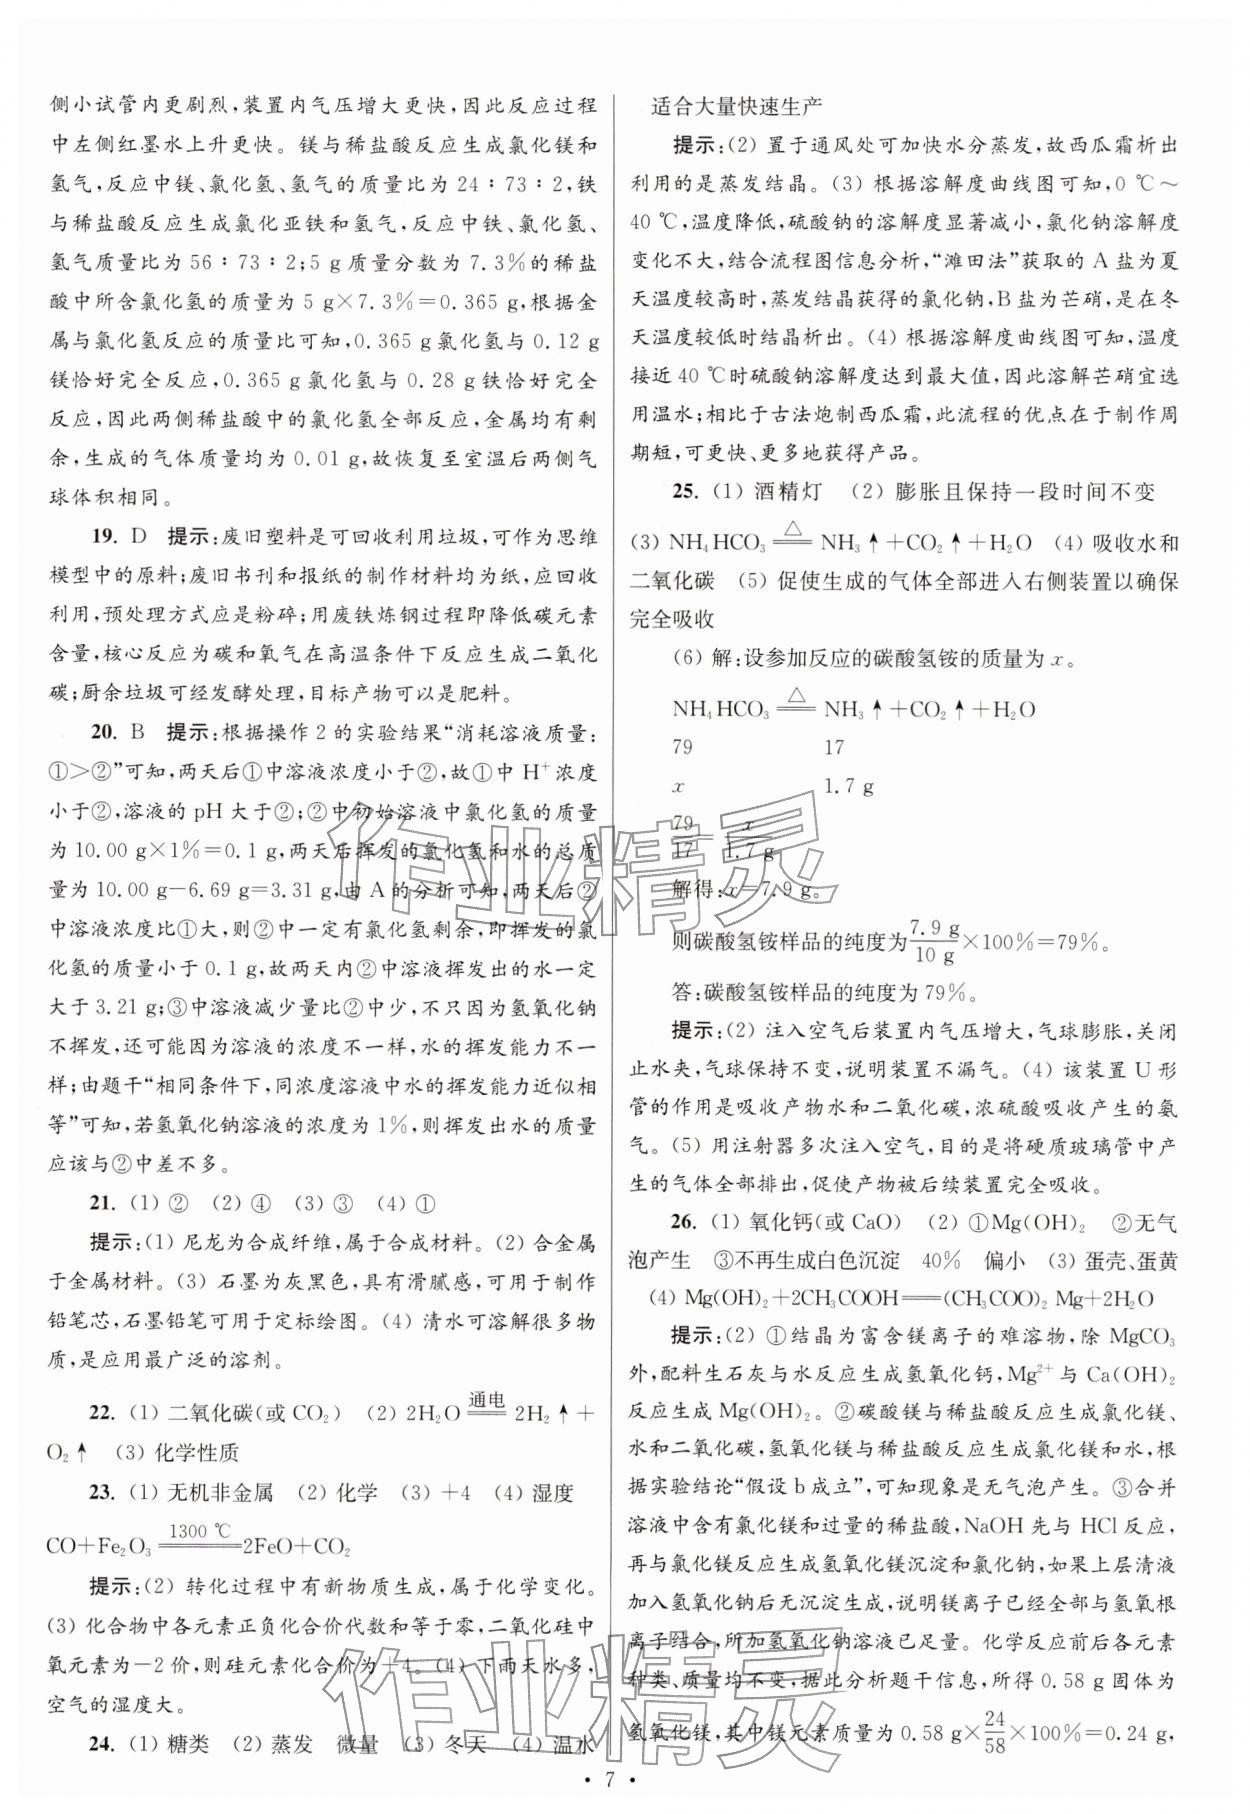 侧小试管内更剧烈,装置内气压增大更快,因此反应过程
中左侧红墨水上升更快。镁与稀盐酸反应生成氯化镁和
氢气,反应中镁、氯化氢、氢气的质量比为24∶73∶2,铁
与稀盐酸反应生成氯化亚铁和氢气,反应中铁、氯化氢、
氢气质量比为56∶73∶2;5 g质量分数为7.3%的稀盐
酸中所含氯化氢的质量为5 g×7.3%=0.365 g,根据金
属与氯化氢反应的质量比可知,0.365 g氯化氢与0.12 g
镁恰好完全反应,0.365 g氯化氢与0.28 g铁恰好完全
反应,因此两侧稀盐酸中的氯化氢全部反应,金属均有剩
余,生成的气体质量均为0.01 g,故恢复至室温后两侧气
球体积相同。
19. D 提示:废旧塑料是可回收利用垃圾,可作为思维
模型中的原料;废旧书刊和报纸的制作材料均为纸,应回收
利用,预处理方式应是粉碎;用废铁炼钢过程即降低碳元素
含量,核心反应为碳和氧气在高温条件下反应生成二氧化
碳;厨余垃圾可经发酵处理,目标产物可以是肥料。
20. B 提示:根据操作2的实验结果“消耗溶液质量:
①>②”可知,两天后①中溶液浓度小于②,故①中H⁺浓度
小于②,溶液的pH大于②;②中初始溶液中氯化氢的质量
为10.00 g×1%=0.1 g,两天后挥发的氯化氢和水的总质
量为10.00 g-6.69 g=3.31 g,由A的分析可知,两天后②
中溶液浓度比①大,则②中一定有氯化氢剩余,即挥发的氯
化氢的质量小于0.1 g,故两天内②中溶液挥发出的水一定
大于3.21 g;③中溶液减少量比②中少,不只因为氢氧化钠
不挥发,还可能因为溶液的浓度不一样,水的挥发能力不一
样;由题干“相同条件下,同浓度溶液中水的挥发能力近似相
等”可知,若氢氧化钠溶液的浓度为1%,则挥发出水的质量
应该与②中差不多。
21. (1) ② (2) ④ (3) ③ (4) ①
提示:(1) 尼龙为合成纤维,属于合成材料。(2) 合金属
于金属材料。(3) 石墨为灰黑色,具有滑腻感,可用于制作
铅笔芯,石墨铅笔可用于定标绘图。(4) 清水可溶解很多物
质,是应用最广泛的溶剂。
22. (1) 二氧化碳(或CO₂) (2) 2H₂O 通电═ 2H₂↑+
O₂↑ (3) 化学性质
23. (1) 无机非金属 (2) 化学 (3) +4 (4) 湿度
CO+Fe₂O₃ 1300 ℃═ 2FeO+CO₂
提示:(2) 转化过程中有新物质生成,属于化学变化。
(3) 化合物中各元素正负化合价代数和等于零,二氧化硅中
氧元素为-2价,则硅元素化合价为+4。(4) 下雨天水多,
空气的湿度大。
24. (1) 糖类 (2) 蒸发 微量 (3) 冬天 (4) 温水
适合大量快速生产
提示:(2) 置于通风处可加快水分蒸发,故西瓜霜析出
利用的是蒸发结晶。(3) 根据溶解度曲线图可知,0 ℃～
40 ℃,温度降低,硫酸钠的溶解度显著减小,氯化钠溶解度
变化不大,结合流程图信息分析,“滩田法”获取的A盐为夏
天温度较高时,蒸发结晶获得的氯化钠,B盐为芒硝,是在冬
天温度较低时结晶析出。(4) 根据溶解度曲线图可知,温度
接近40 ℃时硫酸钠溶解度达到最大值,因此溶解芒硝宜选
用温水;相比于古法炮制西瓜霜,此流程的优点在于制作周
期短,可更快、更多地获得产品。
25. (1) 酒精灯 (2) 膨胀且保持一段时间不变
(3) NH₄HCO₃ △═ NH₃↑+CO₂↑+H₂O (4) 吸收水和
二氧化碳 (5) 促使生成的气体全部进入右侧装置以确保
完全吸收
(6) 解:设参加反应的碳酸氢铵的质量为x。
NH₄HCO₃ △═ NH₃↑+CO₂↑+H₂O
79 17
x 1.7 g
79/17=x/1.7 g
解得:x=7.9 g。
则碳酸氢铵样品的纯度为7.9 g/10 g×100%=79%。
答:碳酸氢铵样品的纯度为79%。
提示:(2) 注入空气后装置内气压增大,气球膨胀,关闭
止水夹,气球保持不变,说明装置不漏气。(4) 该装置U形
管的作用是吸收产物水和二氧化碳,浓硫酸吸收产生的氨
气。(5) 用注射器多次注入空气,目的是将硬质玻璃管中产
生的气体全部排出,促使产物被后续装置完全吸收。
26. (1) 氧化钙(或CaO) (2) ①Mg(OH)₂ ②无气
泡产生 ③不再生成白色沉淀 40% 偏小 (3) 蛋壳、蛋黄
(4) Mg(OH)₂+2CH₃COOH═(CH₃COO)₂Mg+2H₂O
提示:(2) ①结晶为富含镁离子的难溶物,除MgCO₃
外,配料生石灰与水反应生成氢氧化钙,Mg²⁺与Ca(OH)₂
反应生成Mg(OH)₂。②碳酸镁与稀盐酸反应生成氯化镁、
水和二氧化碳,氢氧化镁与稀盐酸反应生成氯化镁和水,根
据实验结论“假设b成立”,可知现象是无气泡产生。③合并
溶液中含有氯化镁和过量的稀盐酸,NaOH先与HCl反应,
再与氯化镁反应生成氢氧化镁沉淀和氯化钠,如果上层清液
加入氢氧化钠后无沉淀生成,说明镁离子已经全部与氢氧根
离子结合,所加氢氧化钠溶液已足量。化学反应前后各元素
种类、质量均不变,据此分析题干信息,所得0.58 g固体为
氢氧化镁,其中镁元素质量为0.58 g×24/58×100%=0.24 g,
· 7 ·
作业精灵
作业精灵